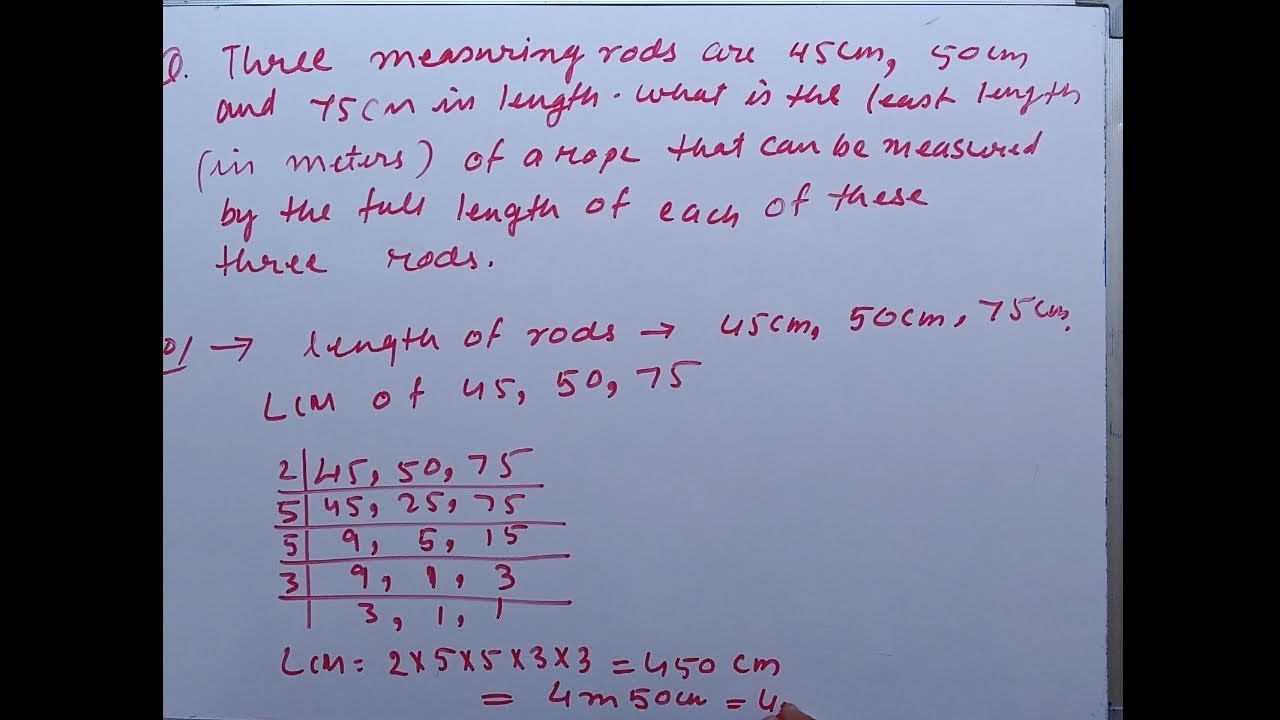 Q. Three measuring rods are 45cm, 50cm
and 75cm in length. What is the least length
(in meters) of a rope that can be measured
by the full length of each of these
three rods.
ol → length of rods → 45cm, 50cm, 75cm.
LCM of 45, 50, 75
2 | 45, 50, 75
5 | 45, 25, 75
5 | 9, 5, 15
3 | 9, 1, 3
| 3, 1, 1
LCM = 2×5×5×3×3 = 450 cm
= 4m 50cm = 4.